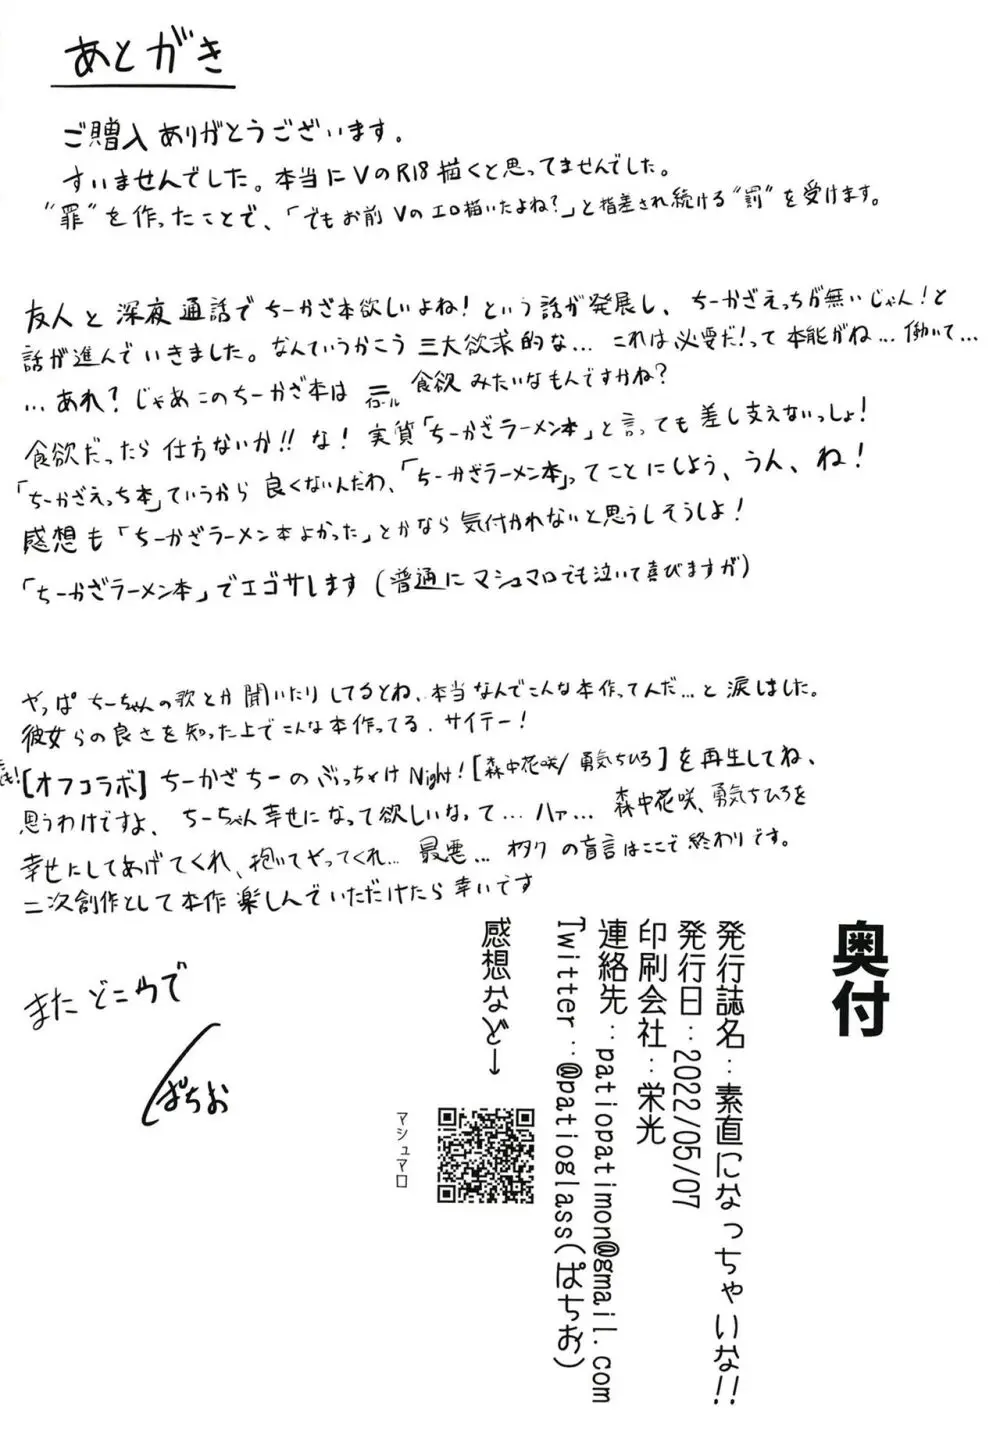 あとがき
ご購入ありがとうございます。
すいませんでした。本当にVのR18描くと思ってませんでした。
"罪"を作ったことで、「でもお前Vのエロ描いたよね?」と指差され続ける"罰"を受けます。
友人と深夜通話でちーかざ本欲しいよね!という話が発展し、ちーかざえっちが無いじゃん!と
話が進んでいきました。なんていうかこう三大欲求的な…これは必要だ!って本能がね…働いて…
…あれ?じゃあこのちーかざ本は=イコール食欲みたいなもんですかね?
食欲だったら仕方ないか!!な!実質「ちーかざラーメン本」と言っても差し支えないっしょ!
「ちーかざえっち本」ていうから良くないんだわ、「ちーかざラーメン本」ってことにしよう、うん、ね!
感想も「ちーかざラーメン本よかった」とかなら気付かれないと思うしそうしよ!
「ちーかざラーメン本」でエゴサします(普通にマシュマロでも泣いて喜びますが)
やっぱちーちゃんの歌とか聞いたりしてるとね、本当なんでこんな本作ってんだ…と涙しました。
彼女らの良さを知った上でこんな本作ってる.サイテー!
[オフコラボ]ちーかざちーのぶっちゃけNight![森中花咲/勇気ちひろ]を再生してね、
思うわけですよ、ちーちゃん幸せになって欲しいなって…ハァ…森中花咲、勇気ちひろを
幸せにしてあげてくれ、抱いてやってくれ…最悪…オタクの盲言はここで終わりです。
二次創作として本作楽しんでいただけたら幸いです
またどこかで
ぱちお
奥付
発行誌名:素直になっちゃいな!!
発行日:2022/05/07
印刷会社:栄光
連絡先:patiopatimon@gmail.com
Twitter:@patioglass(ぱちお)
感想など→
マシュマロ